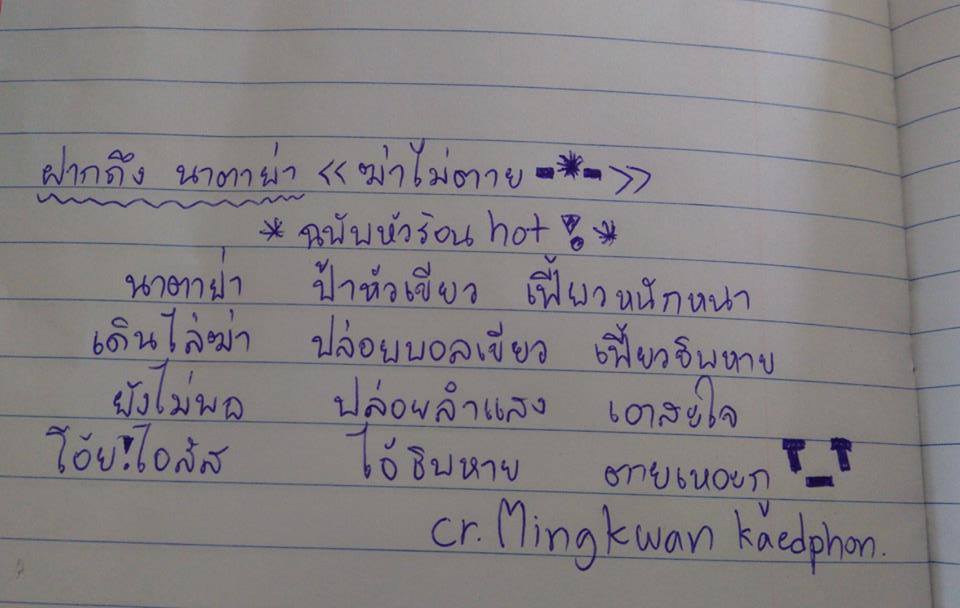 ฝากถึง นาตาย่า <<ฆ่าไม่ตาย -*->>
* ฉบับหัวร้อน hot! *
นาตาย่า ป้าหัวเขียว เฟี้ยวหนักหนา
เดินไล่ฆ่า ปล่อยบอลเขียว เฟี้ยวชิบหาย
ยังไม่พอ ปล่อยลำแสง เอาสะใจ
โอ้ย!ไอสัส ไอ้ชิบหาย ตายเหอะกู T_T
cr. Mingkwan kaedphon.